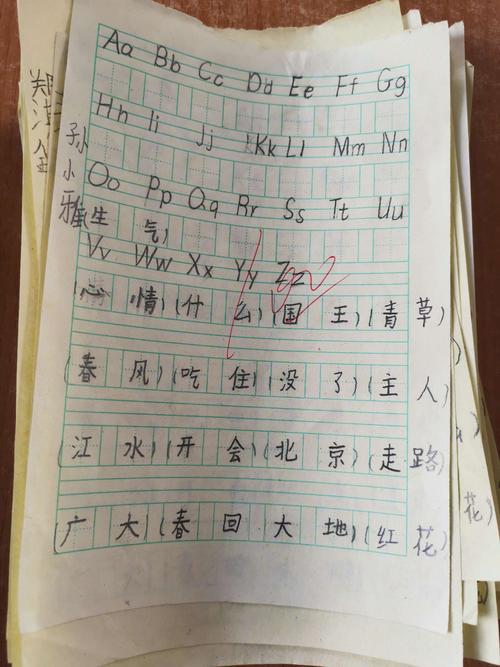 Aa Bb Cc Dd Ee Ff Gg
Hh Ii Jj Kk Ll Mm Nn
Oo Pp Qq Rr Ss Tt Uu
(生气)
Vv Ww Xx Yy Zz
100
心情)(什么)(国王)(青草)
(春风)(吃住)(没了)(主人)
(江水)(开会)(北京)(走路)
(广大)(春回大地)(红花)
孙小雅
花)